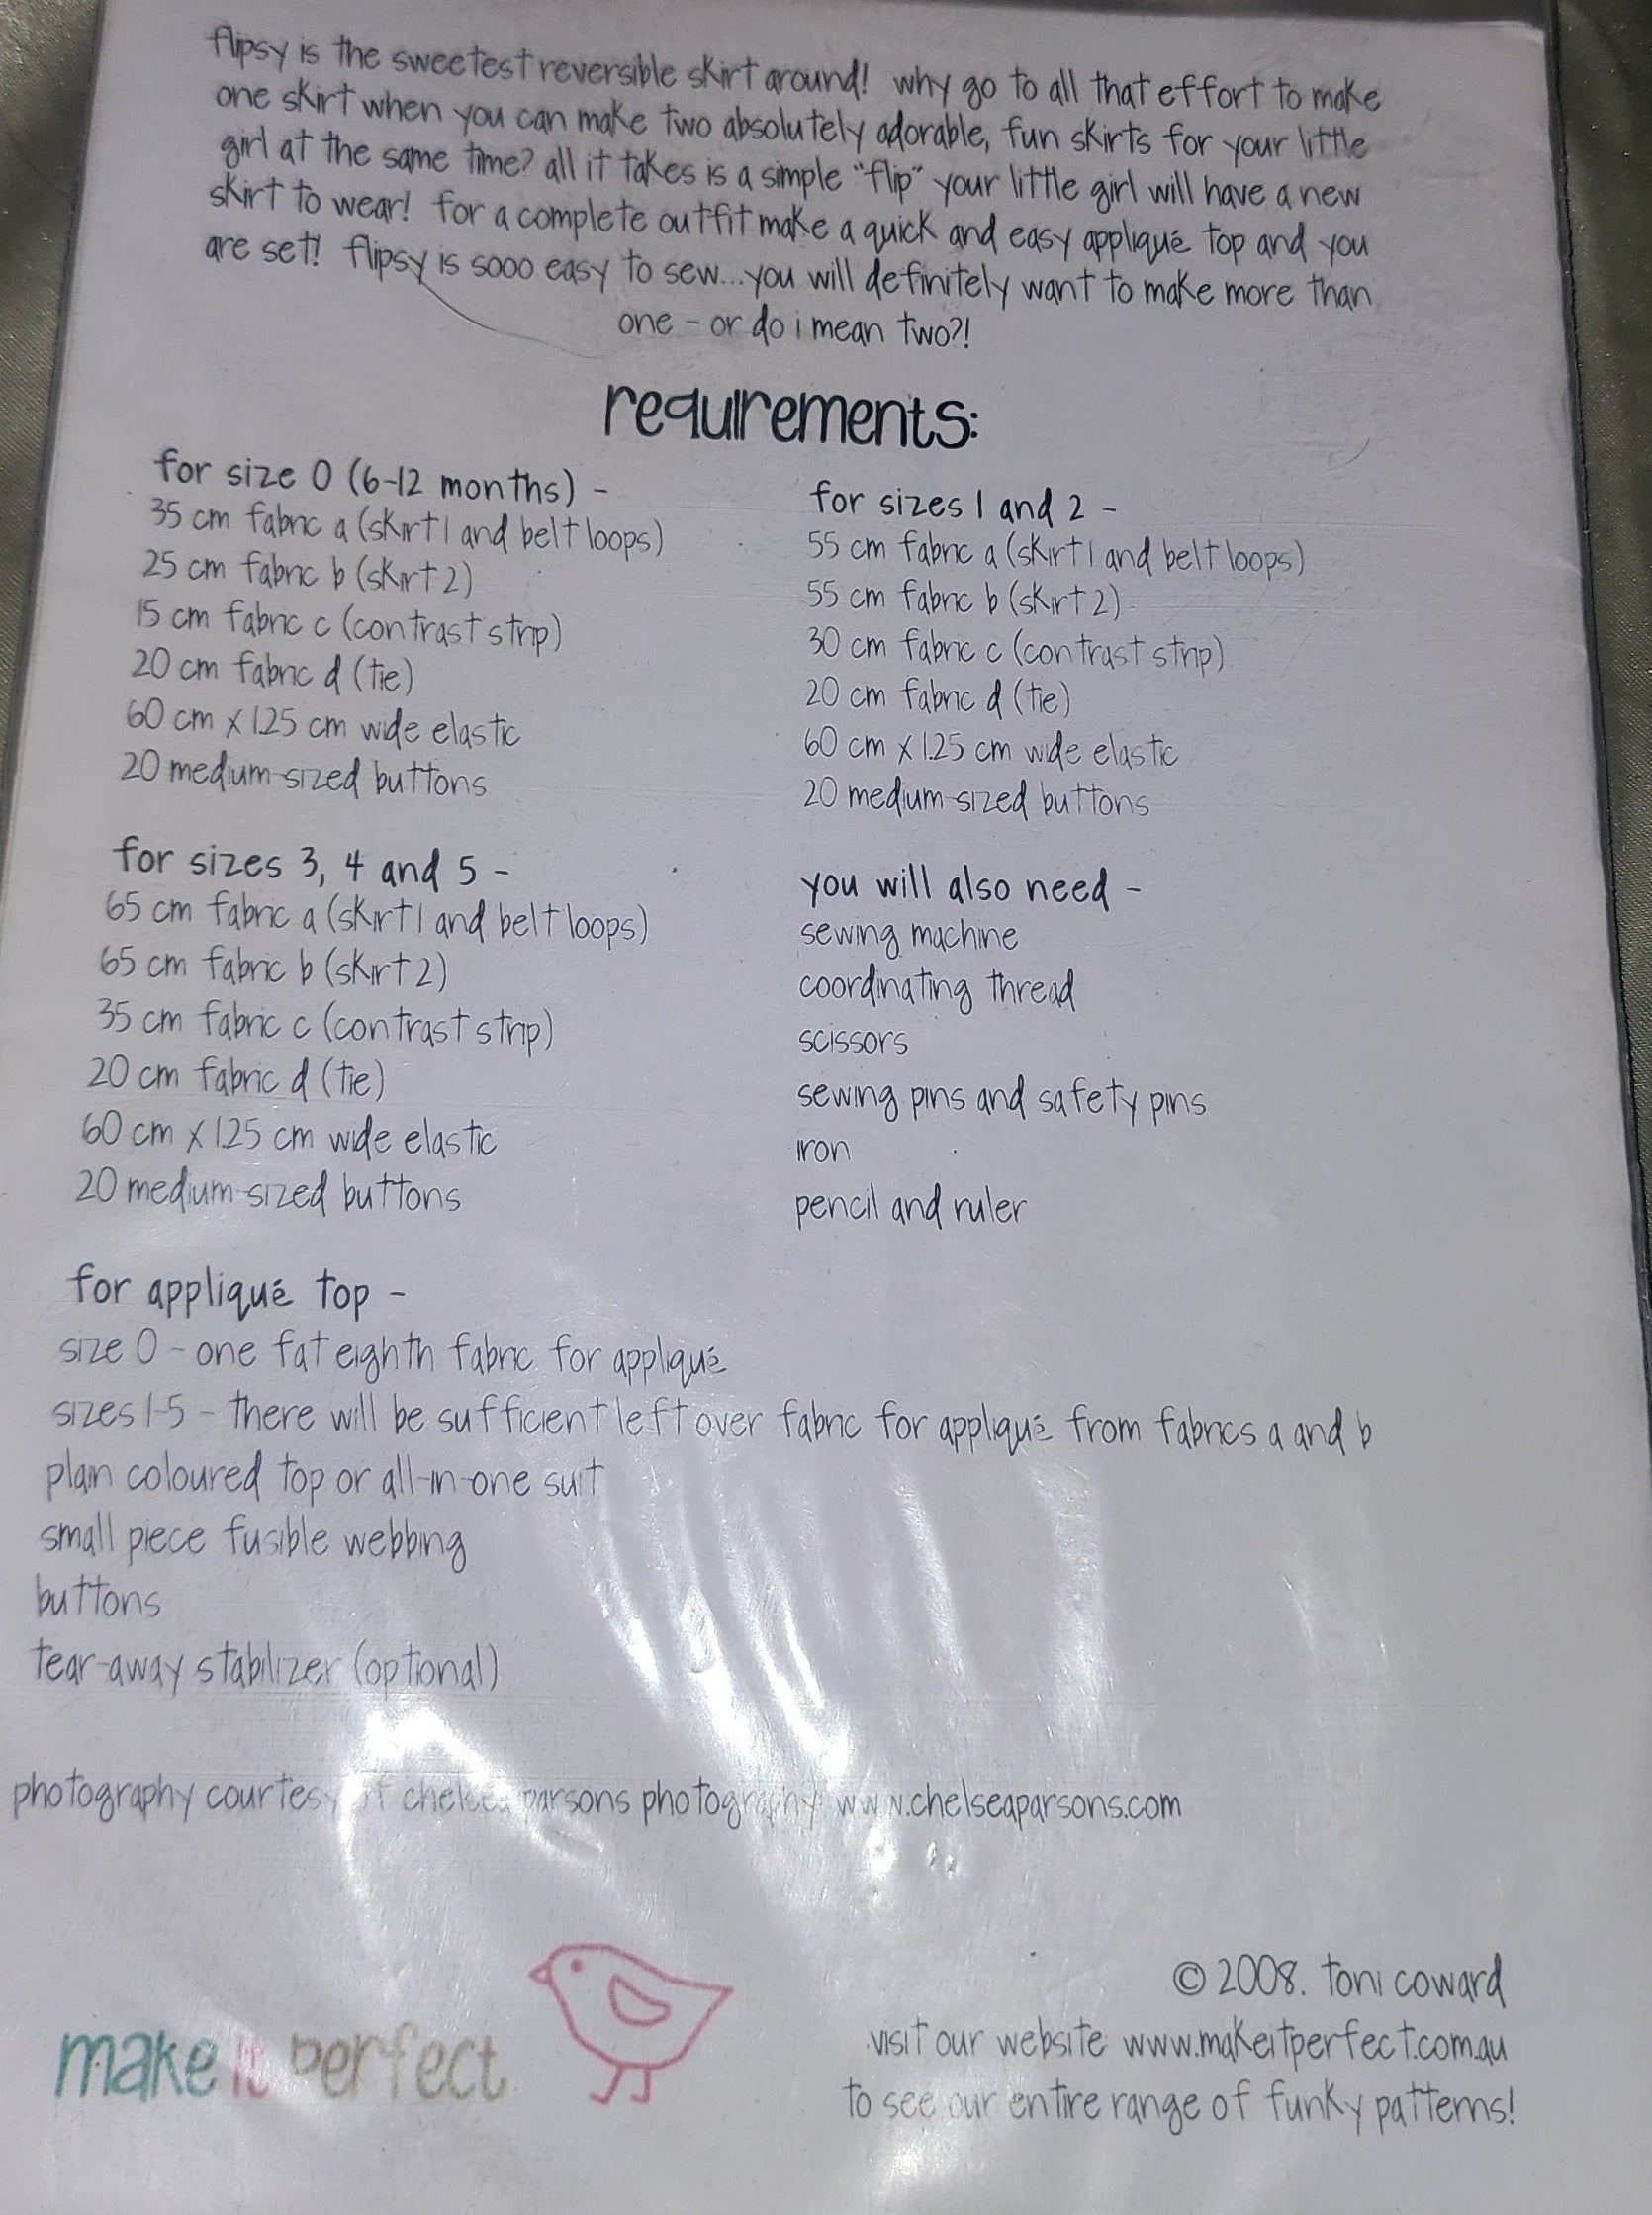 flipsy is the sweetest reversible skirt around! why go to all that effort to make
one skirt when you can make two absolutely adorable, fun skirts for your little
girl at the same time? all it takes is a simple "flip" your little girl will have a new
skirt to wear! for a complete outfit make a quick and easy appliqué top and you
are set! flipsy is sooo easy to sew...you will definitely want to make more than
one - or do i mean two?!
requirements:
for size 0 (6-12 months) -
35 cm fabric a (skirt 1 and belt loops)
25 cm fabric b (skirt 2)
15 cm fabric c (contrast strip)
20 cm fabric d (tie)
60 cm x 1.25 cm wide elastic
20 medium-sized buttons
for sizes 1 and 2 -
55 cm fabric a (skirt 1 and belt loops)
55 cm fabric b (skirt 2)
30 cm fabric c (contrast strip)
20 cm fabric d (tie)
60 cm x 1.25 cm wide elastic
20 medium-sized buttons
for sizes 3, 4 and 5 -
65 cm fabric a (skirt 1 and belt loops)
65 cm fabric b (skirt 2)
35 cm fabric c (contrast strip)
20 cm fabric d (tie)
60 cm x 1.25 cm wide elastic
20 medium-sized buttons
you will also need -
sewing machine
coordinating thread
scissors
sewing pins and safety pins
iron
pencil and ruler
for appliqué top -
size 0 - one fat eighth fabric for appliqué
sizes 1-5 - there will be sufficient left over fabric for appliqué from fabrics a and b
plain coloured top or all-in-one suit
small piece fusible webbing
buttons
tear-away stabilizer (optional)
photography courtesy of chelsea parsons photography www.chelseaparsons.com
make it perfect
© 2008. toni coward
visit our website www.makeitperfect.com.au
to see our entire range of funky patterns!